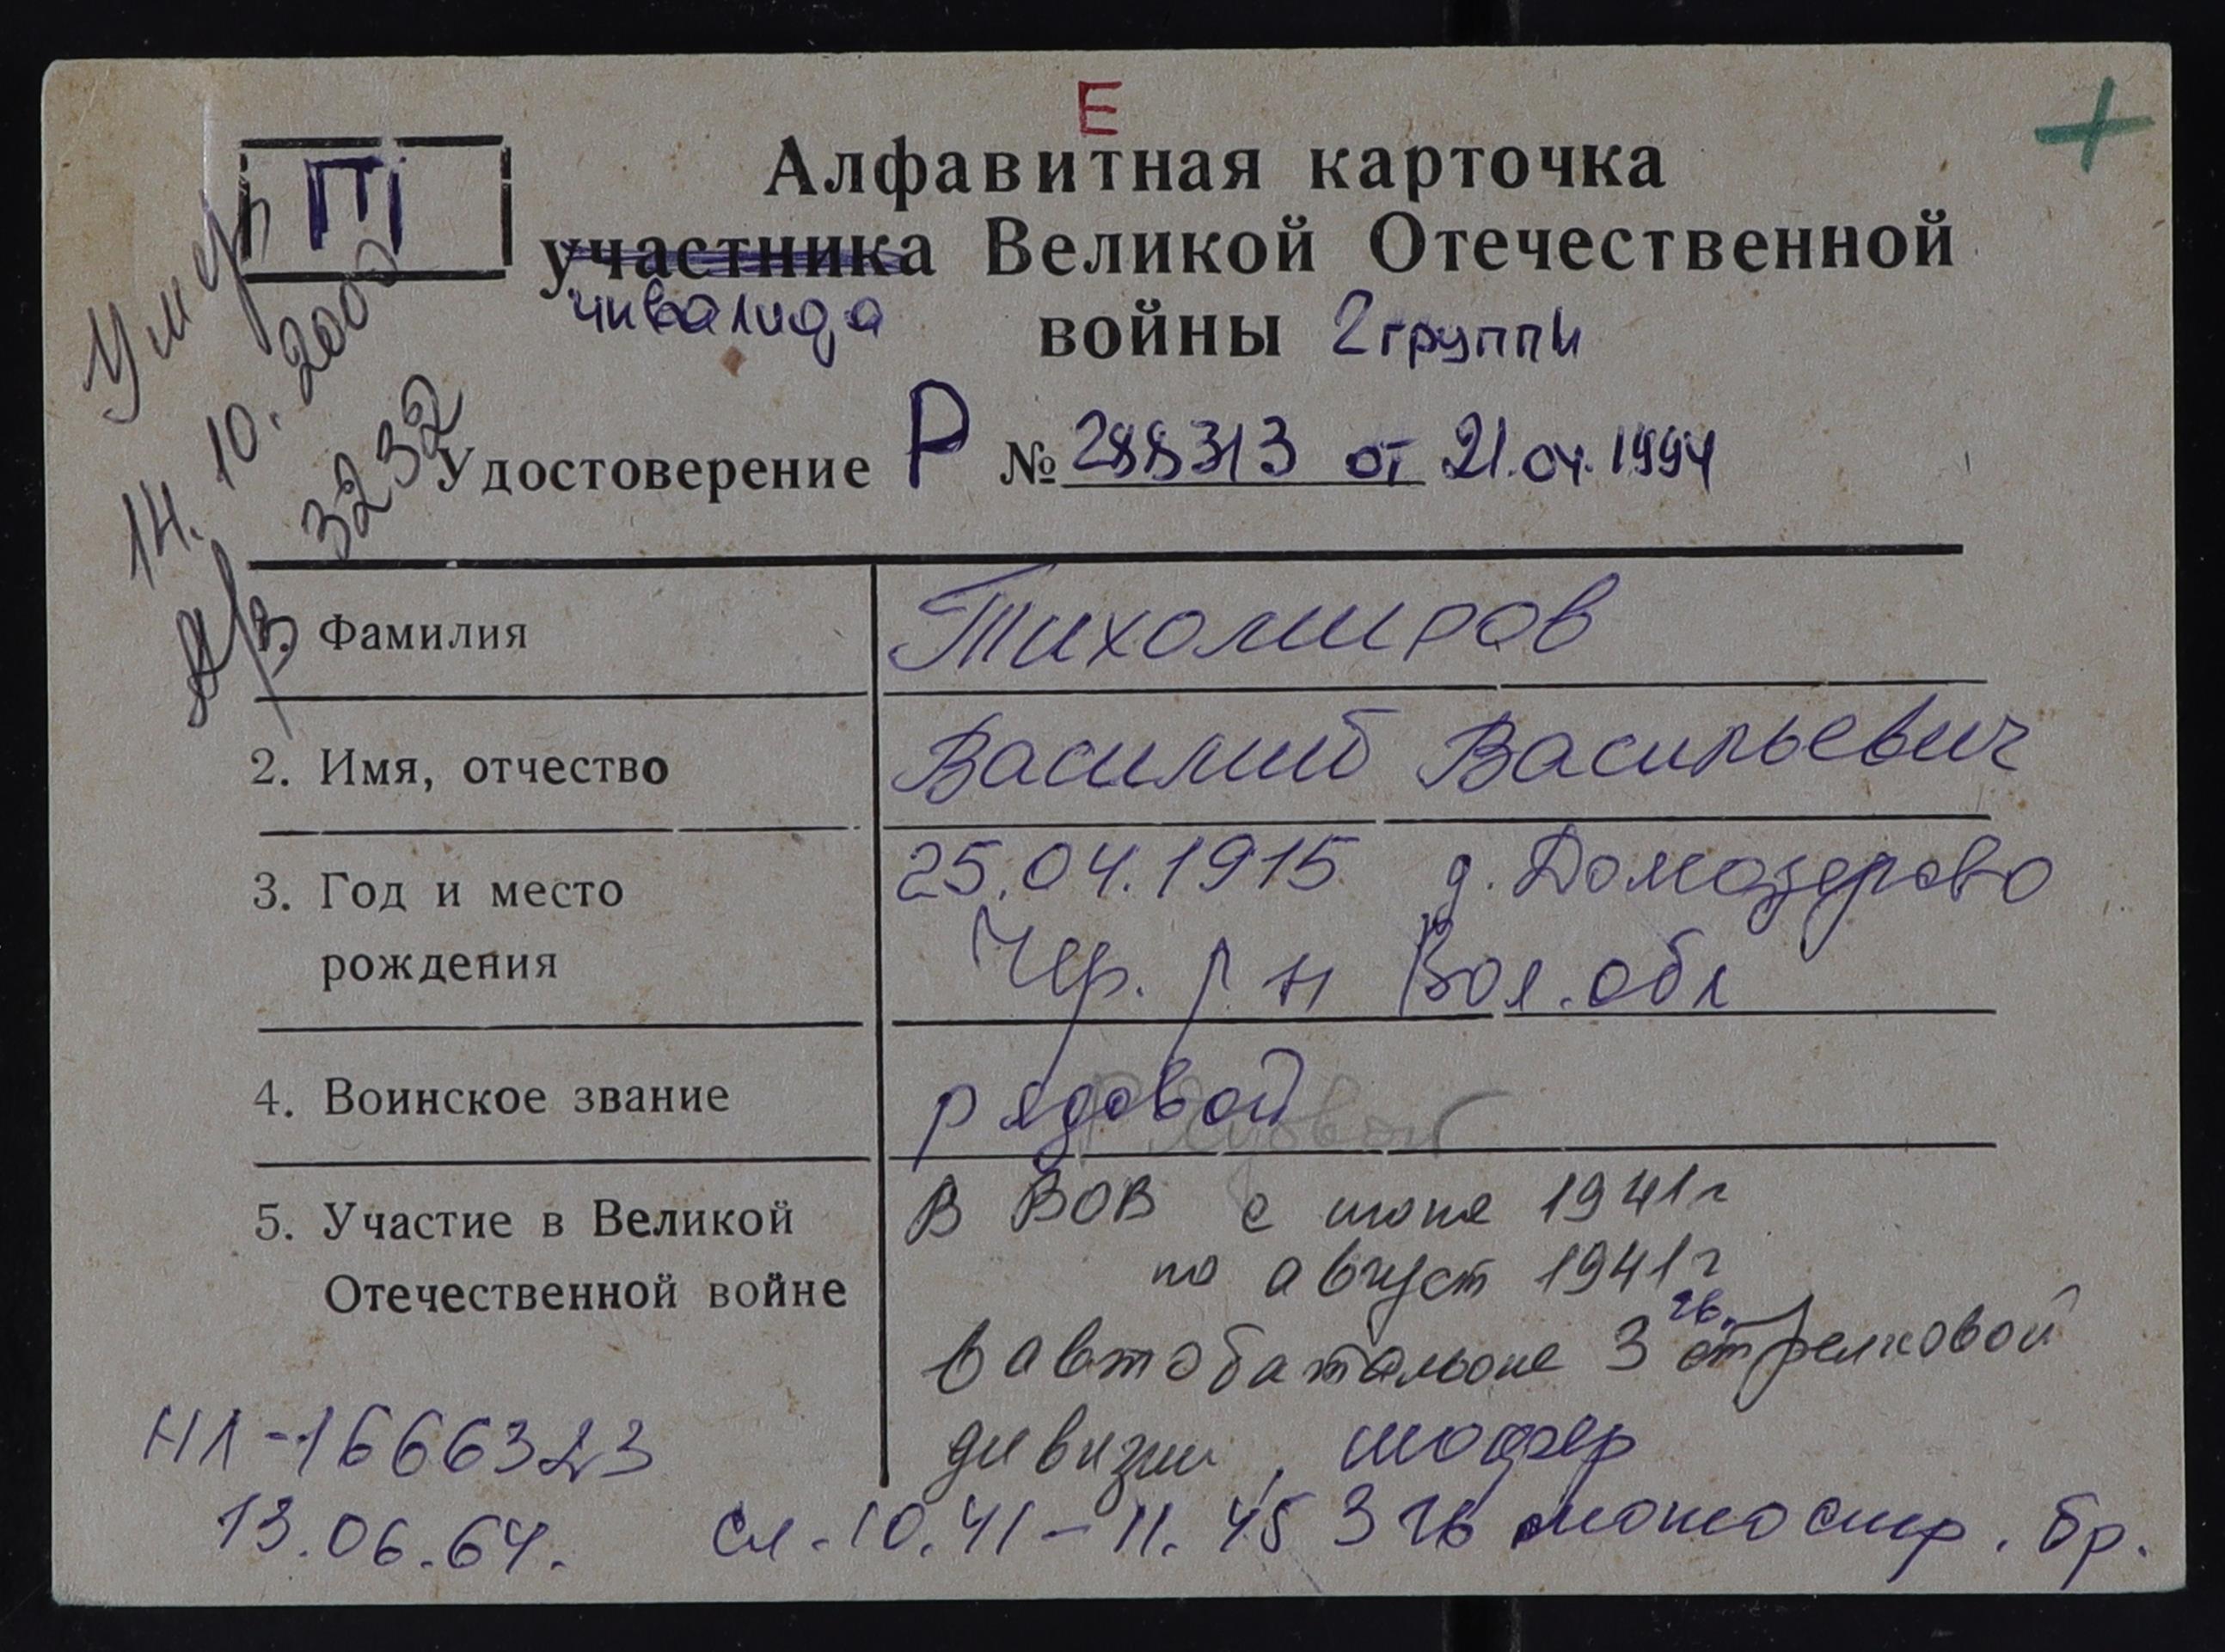 Е
Алфавитная карточка
участника Великой Отечественной
инвалида
войны 2 группы
Удостоверение Р № 288313 от 21.04.1994
Умер
14. 10. 2000
3232
1. Фамилия
Тихомиров
2. Имя, отчество
Василий Васильевич
3. Год и место
рождения
25.04.1915 д. Домозерово
Чер. р-н Вол. обл
4. Воинское звание
рядовой
рядовой
5. Участие в Великой
Отечественной войне
В ВОВ с июня 1941г
по август 1941г
в автобатальоне 3 гв. стрелковой
дивизии, шофер
НЛ-1666323
13.06.64.
сл. 10.41-11.45 3 гв мотостр. бр.